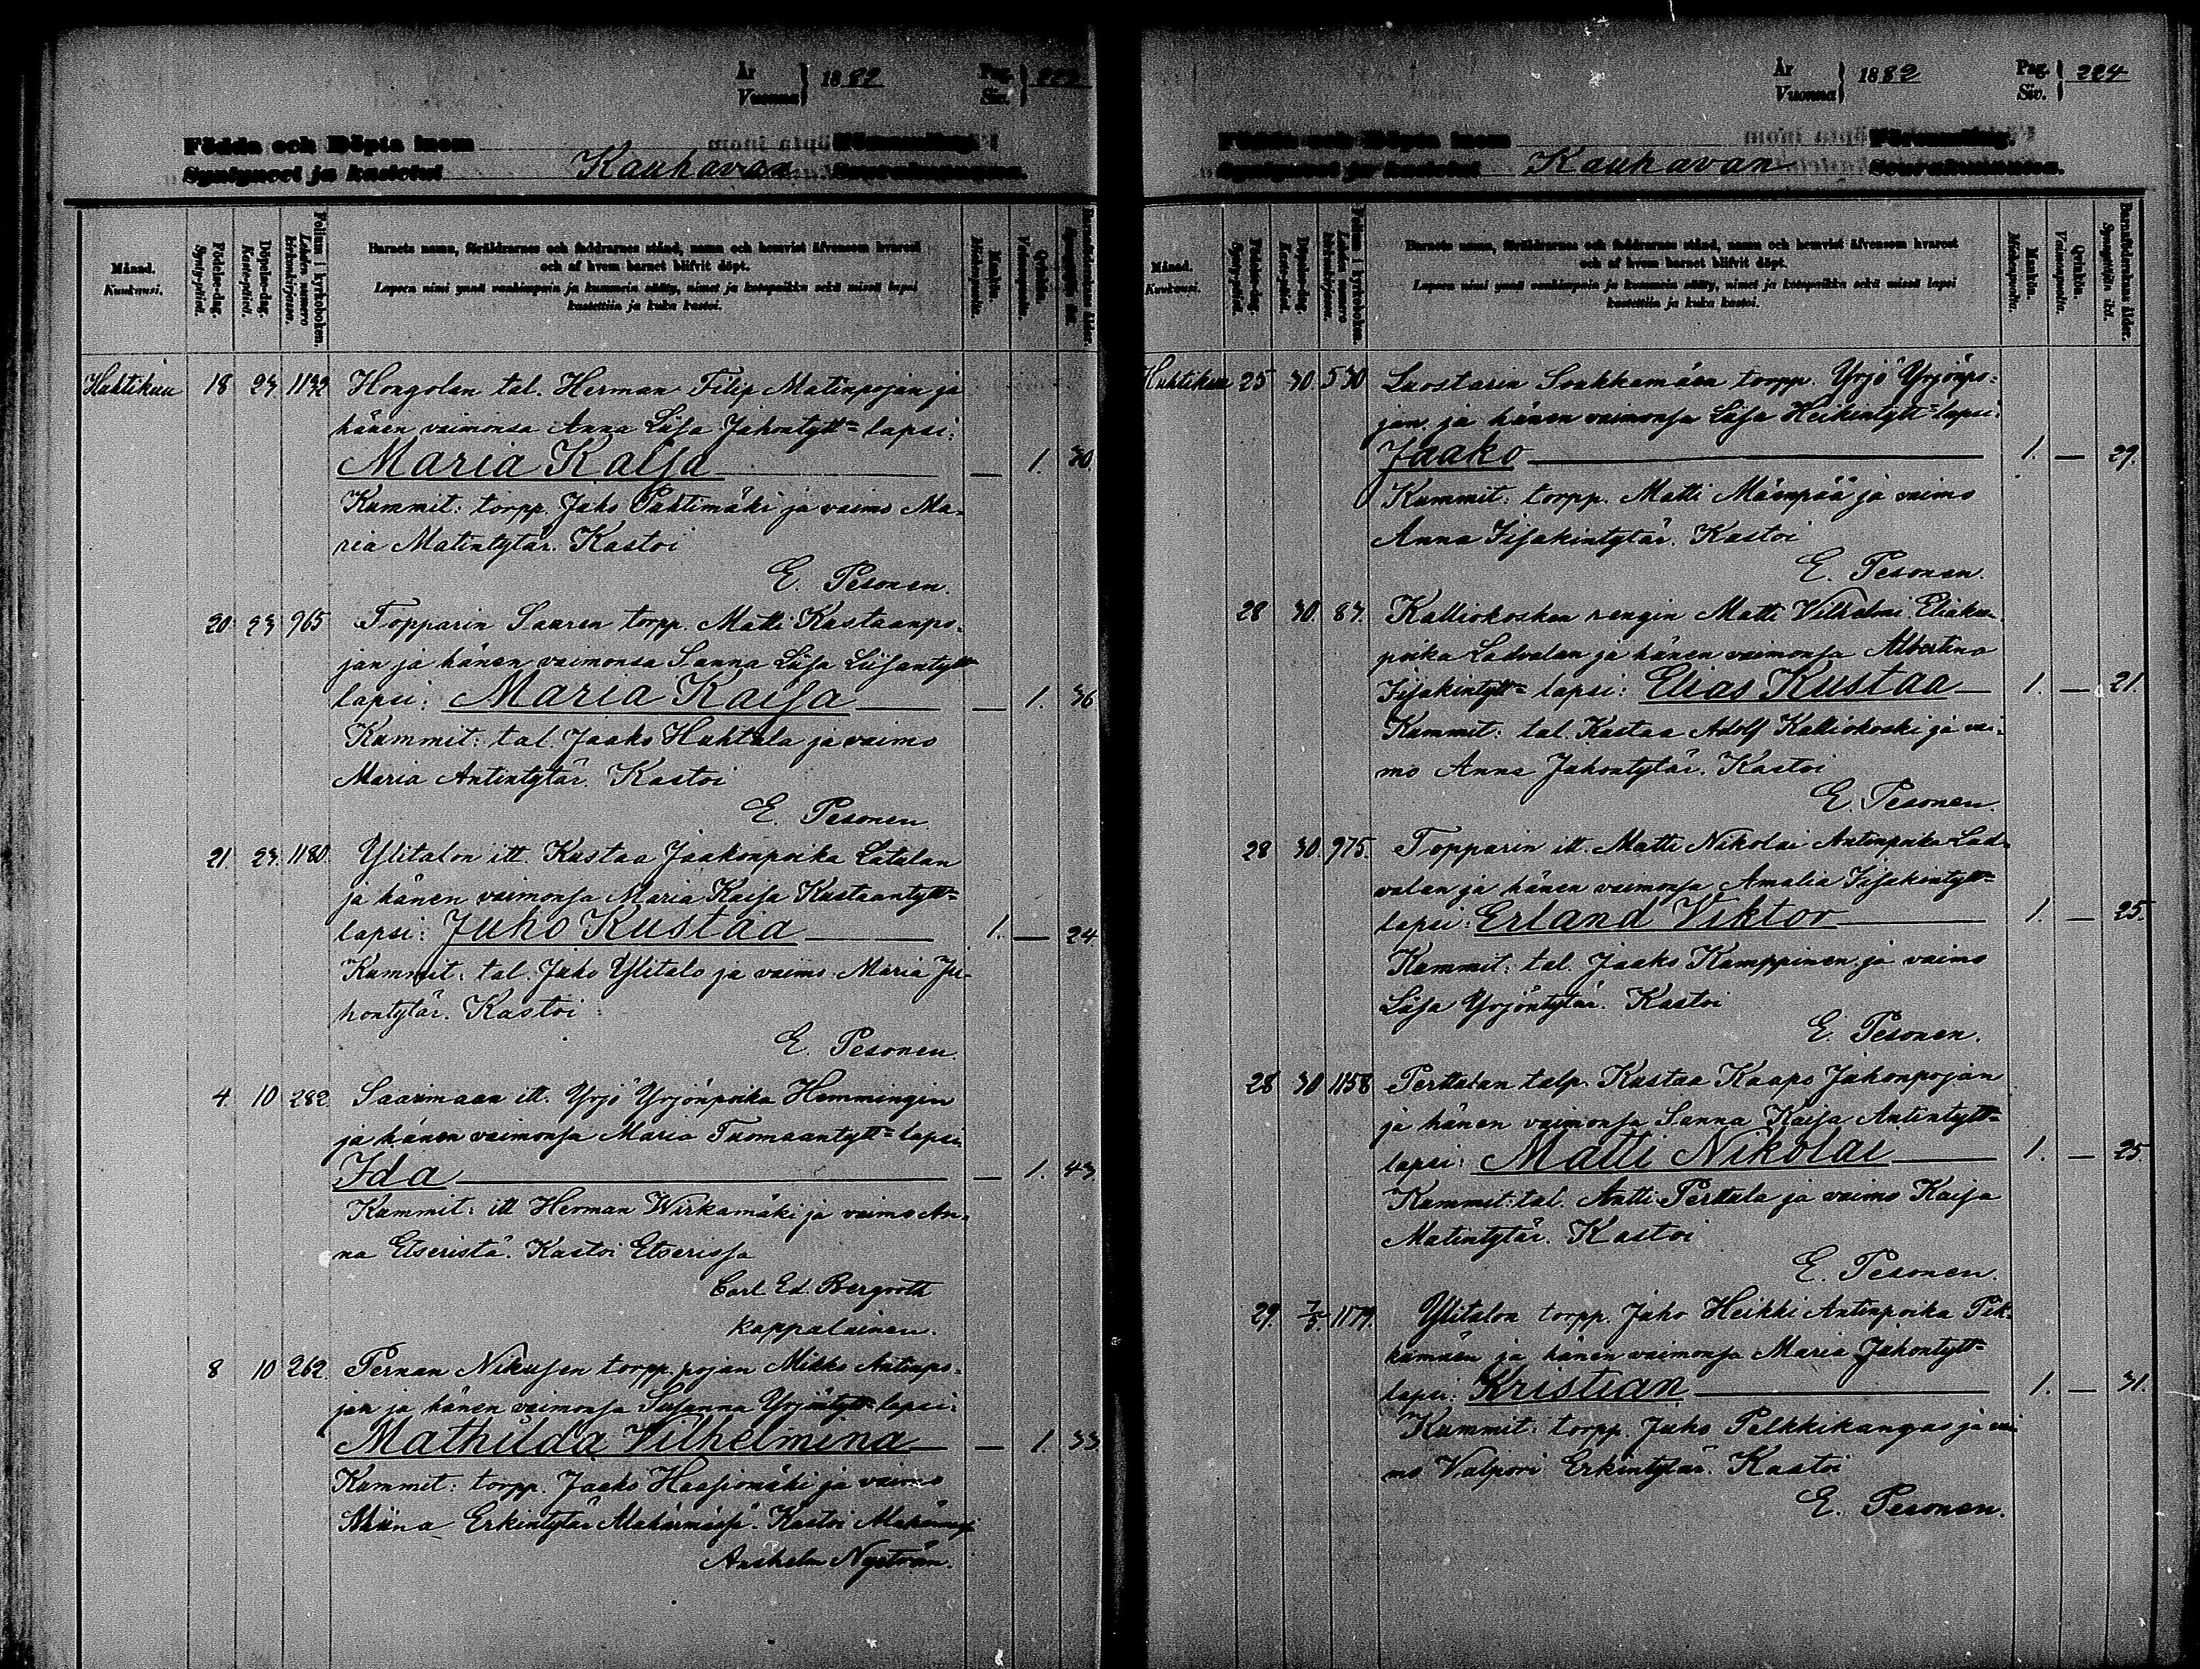 År
Vuonna } 1882
Pag.
Siv. } 223
Födda och Döpta inom Församling.
Syntyneet ja kastetut Kauhavan Seurakunnassa.
Månad.
Kuukausi.
Födelse-dag.
Syntypäivä.
Döpelse-dag.
Kastepäivä.
Folium i kyrkoboken.
Lehden numero kirkonkirjassa.
Barnets namn, föräldrarnes och faddrarnes stånd, namn och hemvist äfvensom hvarest
och af hvem barnet blifvit döpt.
Lapsen nimi ynnä vanhimpain ja kummein sääty, nimet ja kotopaikka sekä missä lapsi
kastettiin ja kuka kastoi.
Mankön.
Miehenpuolia.
Qvinkön.
Vaimonpuolia.
Barnaföderskans ålder.
Synnyttäjän ikä.
Huhtikuu 18 23 1132 Hongolan tal. Herman Filip Matinpojan ja
hänen vaimonsa Anna Liisa Juhontytt= lapsi:
Maria Kaisa — 1. 30.
Kummit: torpp. Juho Pahtimäki ja vaimo Ma-
ria Matintytär. Kastoi
E. Pesonen.
20 23 965 Topparin Saaren torpp. Matti Kustaanpo-
jan ja hänen vaimonsa Sanna Liisa Liisantytt=
lapsi: Maria Kaisa — 1. 36
Kummit: tal. Jaako Huhtala ja vaimo
Maria Antintytär. Kastoi
E. Pesonen.
21. 23. 1180. Ylitalon itt. Kustaa Jaakonpoika Latalan
ja hänen vaimonsa Maria Kaisa Kustaantytt=
lapsi: Juho Kustaa 1. — 24
Kummit: tal. Juho Ylitalo ja vaimo Maria Ju-
hontytär. Kastoi
E. Pesonen.
4. 10 282. Saarimaan itt. Yrjö Yrjönpoika Hemmingin
ja hänen vaimonsa Maria Tuomaantytt= lapsi
Ida — 1. 43.
Kummit: itt Herman Wirkamäki ja vaimo An-
na Etseristä. Kastoi Etserissä
Carl Ed. Bergroth
kappalainen.
8 10 262. Pernan Nikusen torpp. pojan Mikko Antinpo-
jan ja hänen vaimonsa Susanna Yrjöntytt= lapsi:
Mathilda Vilhelmina — 1. 33
Kummit: torpp. Jaako Haapiomäki ja vaimo
Miina Erkintytär Alahärmässä. Kastoi
Anshelm Nyström.
År
Vuonna } 1882
Pag.
Siv. } 224
Födda och Döpta inom Församling.
Syntyneet ja kastetut Kauhavan Seurakunnassa.
Månad.
Kuukausi.
Födelse-dag.
Syntypäivä.
Döpelse-dag.
Kastepäivä.
Folium i kyrkoboken.
Lehden numero kirkonkirjassa.
Barnets namn, föräldrarnes och faddrarnes stånd, namn och hemvist äfvensom hvarest
och af hvem barnet blifvit döpt.
Lapsen nimi ynnä vanhimpain ja kummein sääty, nimet ja kotopaikka sekä missä lapsi
kastettiin ja kuka kastoi.
Mankön.
Miehenpuolia.
Qvinkön.
Vaimonpuolia.
Barnaföderskans ålder.
Synnyttäjän ikä.
Huhtikuu 25 30. 530 Luostarin Soukkamäen torpp. Yrjö Yrjönpo=
jan ja hänen vaimonsa Liisa Heikintytt= lapsi:
Jaako 1. — 29.
Kummit: torpp. Matti Mäenpää ja vaimo
Anna Iisakintytär. Kastoi
E. Pesonen.
28 30. 87. Kalliokosken rengin Matti Vilhelmi Eliakse
poika Ladvalan ja hänen vaimonsa Albertina
Iisakintytt= lapsi: Elias Kustaa — 1. — 21.
Kummit: tal. Kustaa Adolf Kalliokoski ja vai-
mo Anna Juhontytär. Kastoi
E. Pesonen.
28 30. 975. Topparin itt. Matti Nikolai Antinpoika Lad-
valan ja hänen vaimonsa Amalia Iisakintytt=
lapsi: Erland Viktor 1. — 25.
Kummit: tal. Jaako Kamppinen ja vaimo
Liisa Yrjöntytär. Kastoi
E. Pesonen.
28 30 1158 Perttulan talp. Kustaa Kaapo Juhonpojan
ja hänen vaimonsa Sanna Kaisa Antintytt=
lapsi: Matti Nikolai 1. — 25
Kummit: tal. Antti Perttula ja vaimo Kaisa
Matintytär. Kastoi
E. Pesonen.
29. 7/5. 1179. Ylitalon torpp. Juho Heikki Antinpoika
ja hänen vaimonsa Maria Juhontytt=
lapsi: Kristian 1. — 31.
Kummit: torpp. Juho Pelkkikangas ja vai
mo Valpori Erkintytär. Kastoi
E. Pesonen.